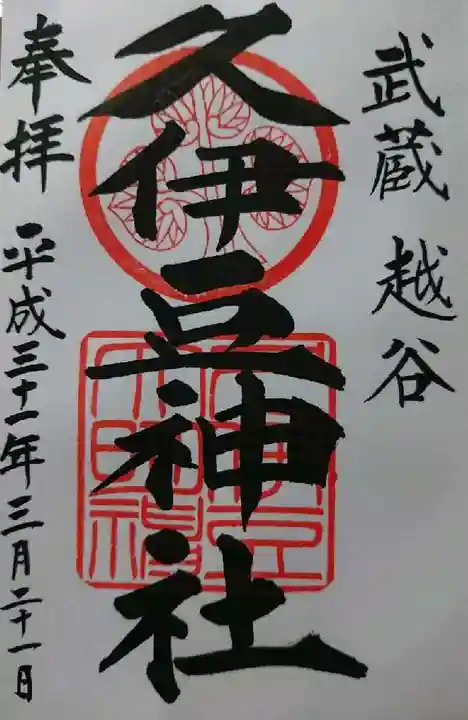 武蔵 越谷
久伊豆神社
奉拝 平成三十一年三月二十一日